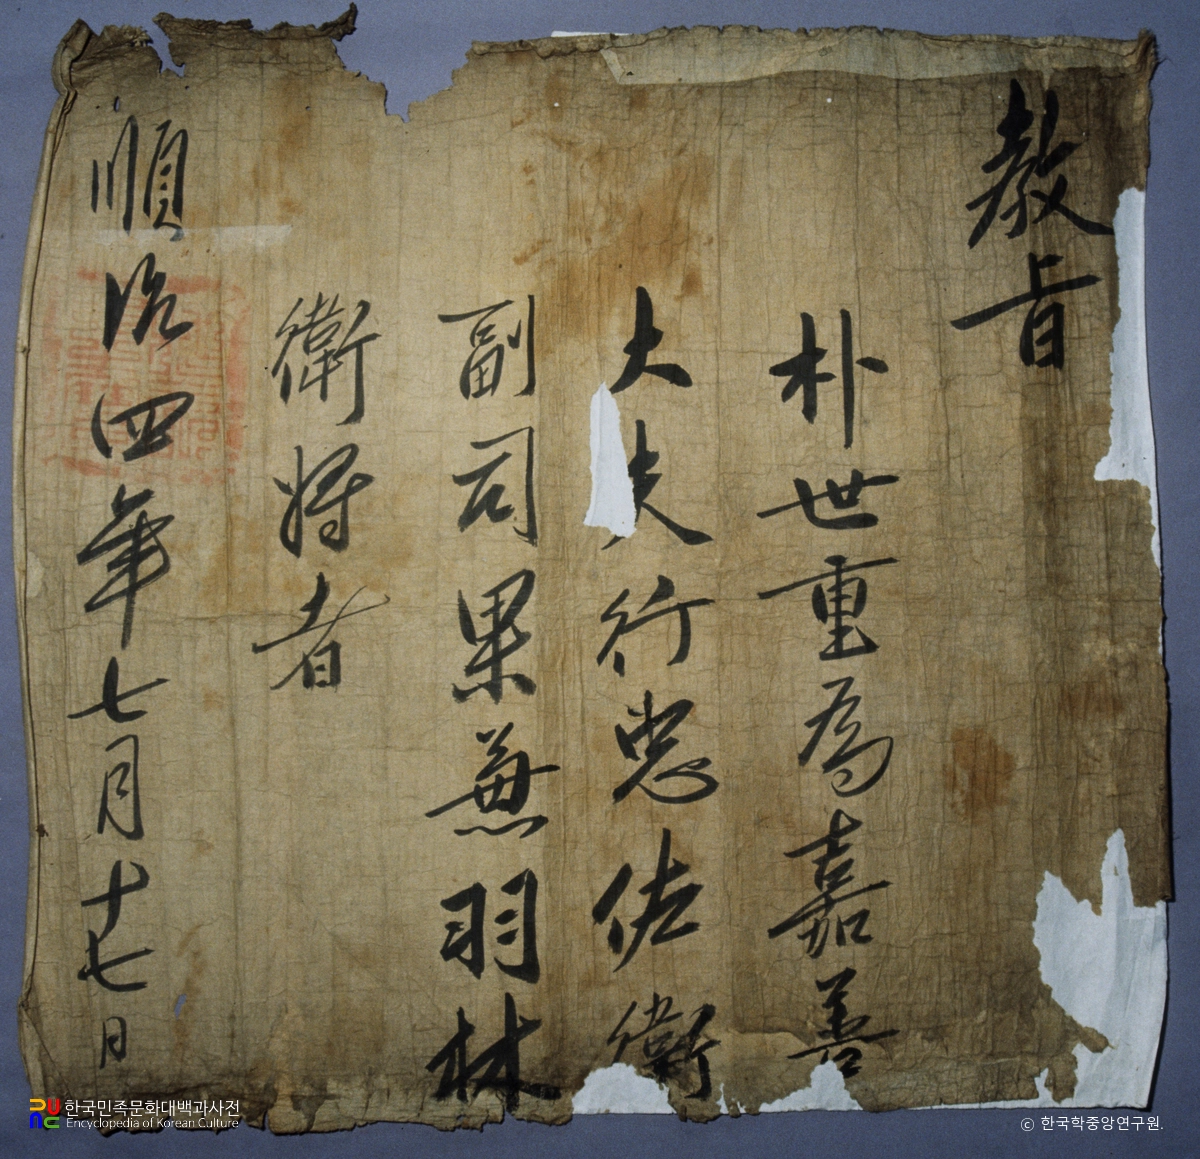 教旨
朴世重為嘉善
大夫行忠佐衛
副司果兼羽林
衛將者
順治四年七月十七日
한국민족문화대백과사전
Encyclopedia of Korean Culture
ⓒ 한국학중앙연구원.